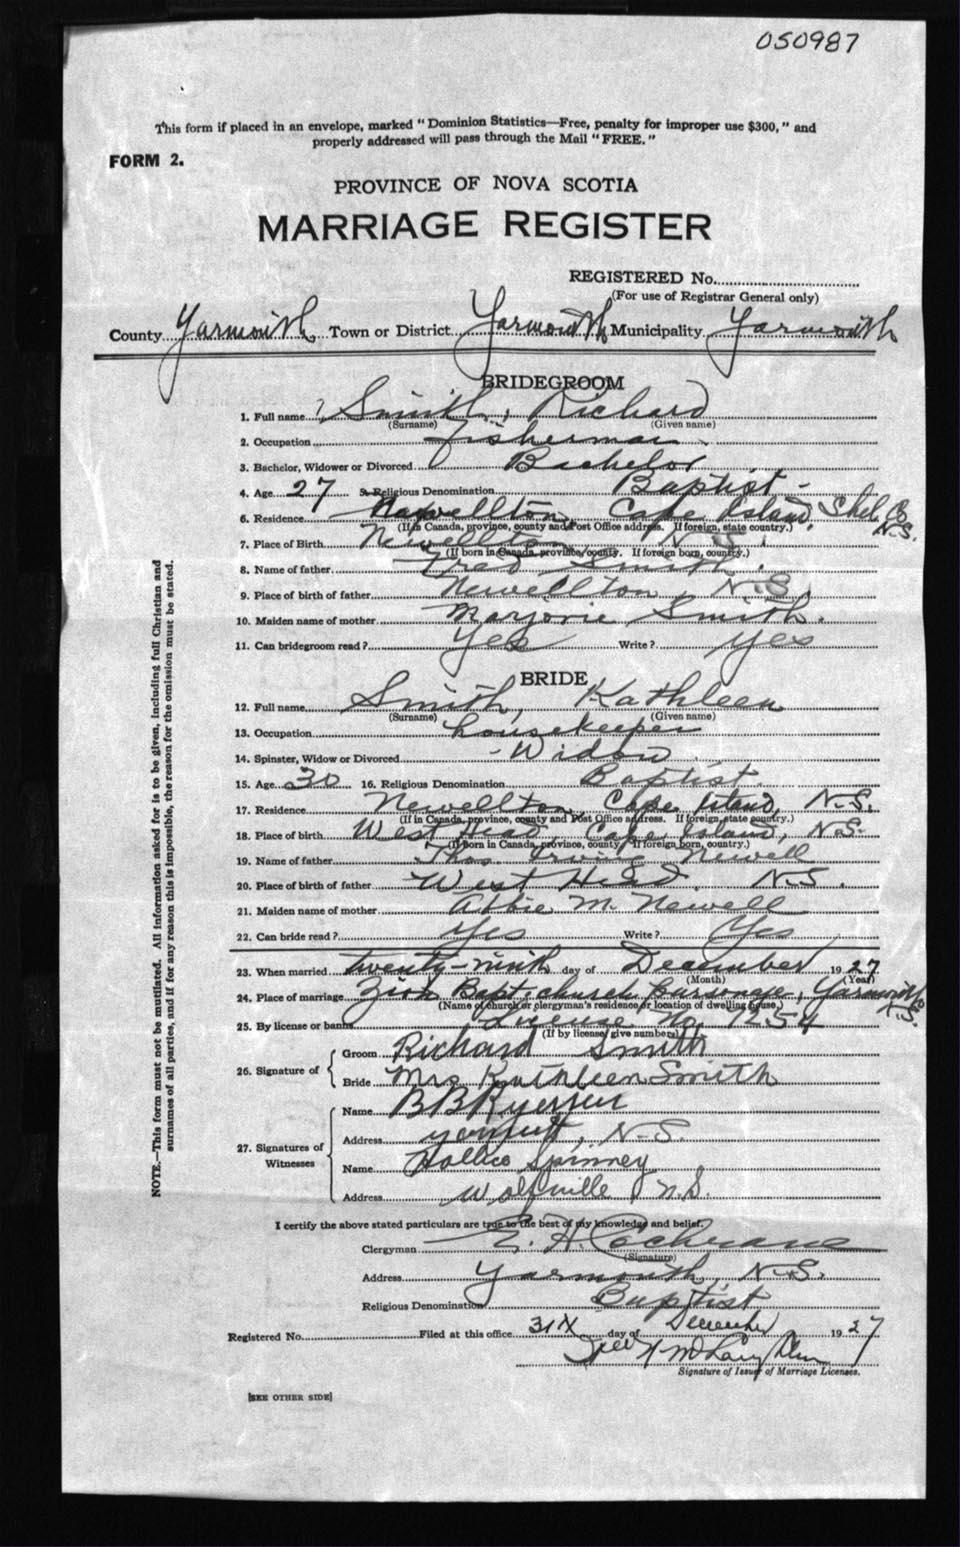 050987
This form if placed in an envelope, marked "Dominion Statistics—Free, penalty for improper use $300," and
properly addressed will pass through the Mail "FREE."
FORM 2.
PROVINCE OF NOVA SCOTIA
MARRIAGE REGISTER
REGISTERED No.
(For use of Registrar General only)
County Yarmouth Town or District Yarmouth Municipality Yarmouth
BRIDEGROOM
1. Full name Smith, Richard
(Surname) (Given name)
2. Occupation fisherman
3. Bachelor, Widower or Divorced Bachelor
4. Age 27 5. Religious Denomination Baptist
6. Residence Newellton Cape Island, Shel. Co. N.S.
(If in Canada, province, county and Post Office address. If foreign, state country.)
7. Place of Birth Newellton N.S.
(If born in Canada, province, county. If foreign born, country.)
8. Name of father Fred Smith.
9. Place of birth of father Newellton N.S.
10. Maiden name of mother Marjorie Smith.
11. Can bridegroom read? Yes Write? Yes
BRIDE
12. Full name Smith, Kathleen
(Surname) (Given name)
13. Occupation housekeeper
14. Spinster, Widow or Divorced Widow
15. Age 30 16. Religious Denomination Baptist
17. Residence Newellton, Cape Island, N.S.
(If in Canada, province, county and Post Office address. If foreign, state country.)
18. Place of birth West Head, Cape Island, N.S.
(If born in Canada, province, county. If foreign born, country.)
19. Name of father Thos. Irving Newell
20. Place of birth of father West Head, N.S.
21. Maiden name of mother Abbie M. Newell
22. Can bride read? Yes Write? Yes
23. When married twenty-ninth day of December 1927
(Month) (Year)
24. Place of marriage Zion Bapt. church parsonage, Yarmouth N.S.
(Name of church or clergyman's residence or location of dwelling house.)
25. By license or banns License No. 1254
(If by license, give number)
26. Signature of
Groom Richard Smith
Bride Mrs Kathleen Smith
27. Signatures of Witnesses
Name B B Ryerson
Address N.S.
Name Spinney
Address Wolfville N.S.
I certify the above stated particulars are true to the best of my knowledge and belief.
Clergyman E. H. Cochrane
(Signature)
Address Yarmouth, N.S.
Religious Denomination Baptist
Registered No. Filed at this office 31st day of December 1927
Signature of Issuer of Marriage Licenses.
[SEE OTHER SIDE]
NOTE.—This form must not be mutilated. All information asked for is to be given, including full Christian and
surnames of all parties, and if for any reason this is impossible, the reason for the omission must be stated.